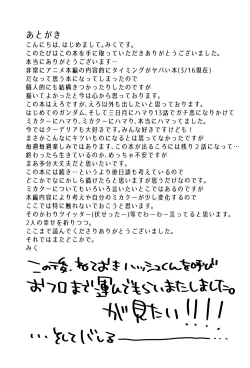 あとがき
こんにちは、はじめまして。みくです。
このたびはこの本を手に取っていただきありがとうございました。
本当にありがとうございます…
非常にアニメ本編の内容的にタイミングがヤバい本(3/16現在)
だなって思う本になってしまったので
個人的にも結構きつかったりしたのですが
描いてよかったと今は心から思っております。
この本はえろですが、えろ以外も出したいと思っております。
はじめてのガンダム、そして三日月にハマり13話でガチ恋になりかけて
ミカクーにハマり、ミカクーにハマり、本当にハマってました。
今ではクーデリアも大好きです。みんな好きですけども!
まさかこんなにキラキラしたものになるとは思ってなかったですが
毎週毎週楽しみであります、この本が出るころには残り2話になって…
終わったら生きているのか、めっちゃ不安ですが
まあ多分大丈夫だと思いたいです。
この本には続き…というより後日談も考えているので
どこかでなにかしら描けたらと思いますが思うだけなので。
ミカクーについてもいろいろ言いたいとこではあるのですが
本編内容により考えや自分のミカクーが少し変化するので
ここでは特に触れないでおこうと思います。
そのかわりツイッター(伏せったー)等でわーわー言ってると思います。
2人の幸せを祈りつつ。
ここまで読んでくださりありがとうございました。
それではまたどこかで。
みく
この後、ねておきハッシュくんを呼び
おフロまで運んでもらいましたました。
が見たい!!!!
…そしてバレる――